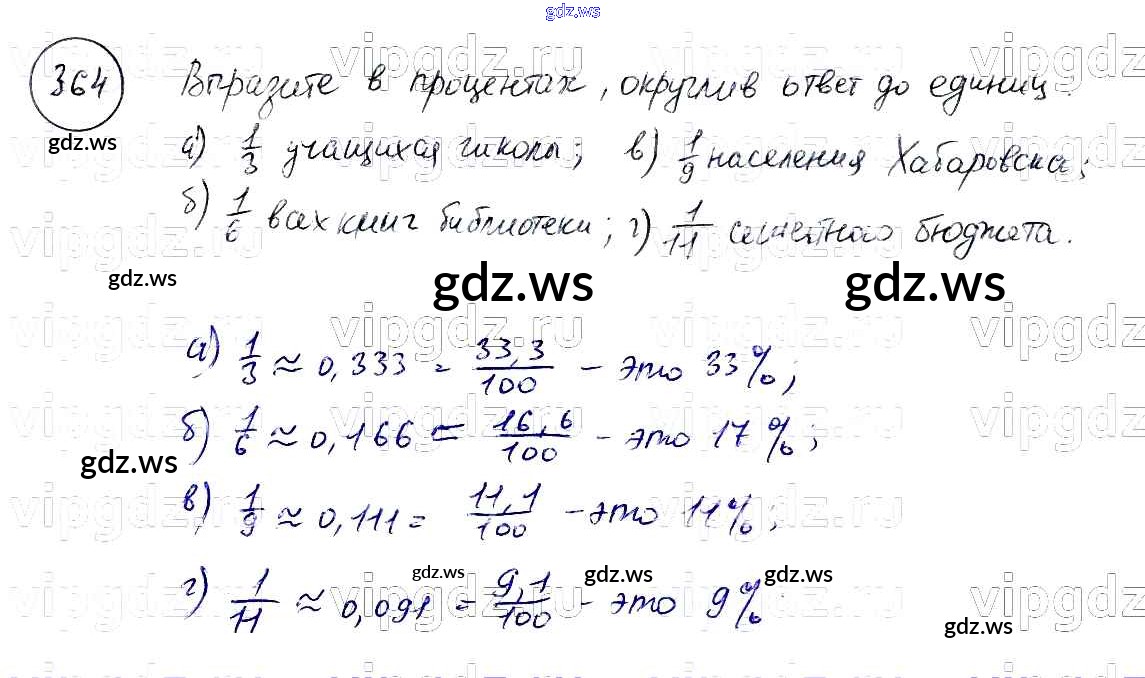 gdz.ws
364 Выразите в процентах, округлив ответ до единиц.
gdz.ws
а) 1/3 учащихся школы; в) 1/9 населения Хабаровска;
б) 1/6 всех книг библиотеки; г) 1/11 семейного бюджета.
gdz.ws
gdz.ws gdz.ws
vipgdz.ru vipgdz.ru vipgdz.ru vipgdz.ru
а) 1/3 ≈ 0,333 = 33,3/100 - это 33%;
б) 1/6 ≈ 0,166 = 16,6/100 - это 17%;
gdz.ws
в) 1/9 ≈ 0,111 = 11,1/100 - это 11%;
gdz.ws gdz.ws gdz.ws
г) 1/11 ≈ 0,091 = 9,1/100 - это 9%
gdz.ws